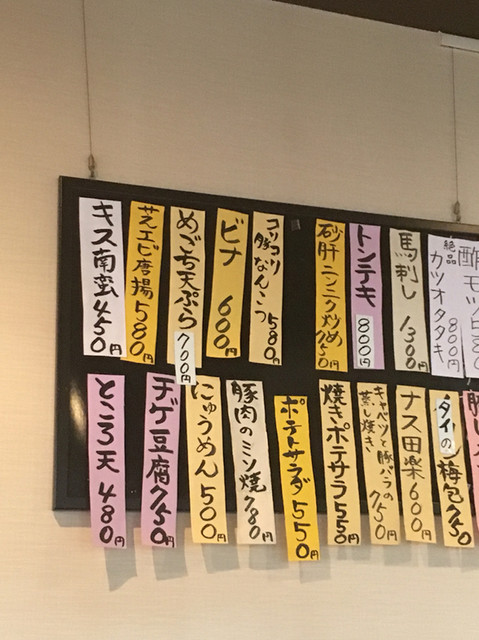 酢モツ
絶品
カツオタタキ
800円
馬刺し 1300円
トンテキ
800円
砂肝ニンニク炒め 750円
コリコリ
豚なんこつ 580円
ビナ 600円
めごち天ぷら
700円
芝エビ唐揚 580円
キス南蛮 450円
タイの梅包 750
ナス田楽 600円
キャベツと豚バラの
蒸し焼き
750円
焼きポテサラ 550円
ポテトサラダ 550円
豚肉のミソ焼 780円
にゅうめん 500円
チゲ豆腐 750円
ところ天 480円